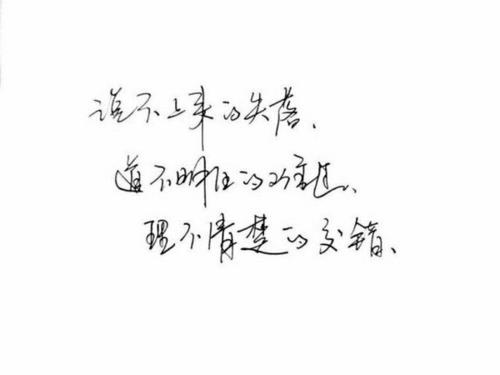 说不上来的失落、
道不明白的难过、
理不清楚的交错、